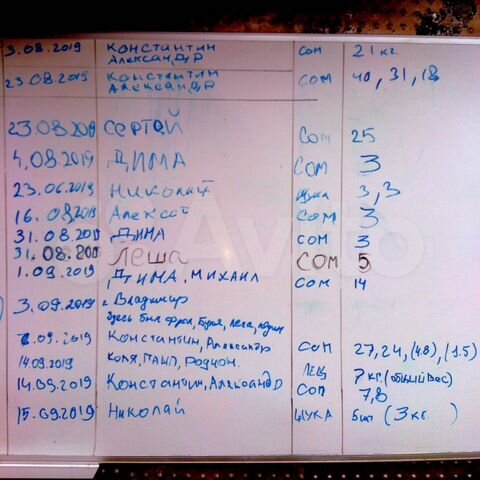 3.08.2019 Константин Александр сом 21 кг.
23.08.2019 Константин Александр сом 40, 31, 18
23.08.2019 Сергей Сом 25
4.08.2019 Дима Сом 3
23.06.2019 Николай Щука 3,3
16.08.2019 Алексей Сом 3
31.08.2019 Дима сом 3
31.08.201 Леша Сом 5
1.09.2019 Дима, Михаил сом 14
3.09.2019 г. Владимир
Здесь был Фрол, Бурый, Леха,
09.2019 Константин, Александр Сом 27,24, (4.8), (1.5)
14.09.2019 Коля, Паша, Родион. Лещ 7кг. (общий вес)
14.09.2019 Константин, Александр Сом 7,8
15.09.2019 Николай щука 5шт (3кг.)
Avito